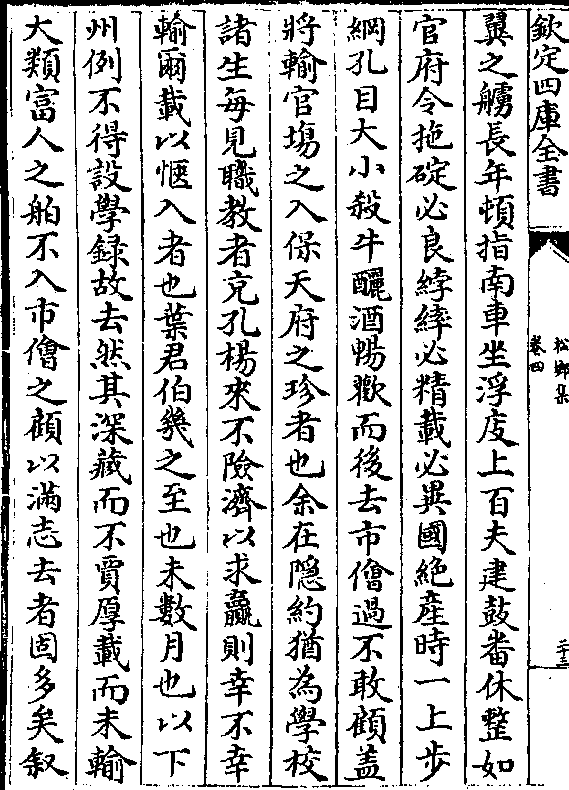 欽定四庫全書
松鄉集
卷四
二十三
翼之艣長年頓指南車坐浮庋上百夫建鼓番休整如
官府令拖碇必良綍縴必精載必異國絶産時一上步
綱孔目大小殺牛釃酒暢歡而後去市儈過不敢顧蓋
將輸官塲之入保天府之珍者也余在隠約猶為學校
諸生每見職教者克孔楊來不險濟以求贏則幸不幸
輸爾載以愜入者也葉君伯幾之至也未數月也以下
州例不得設學録故去然其深藏而不賈厚載而未輸
大類富人之舶不入市儈之顧以滿志去者固多矣叙